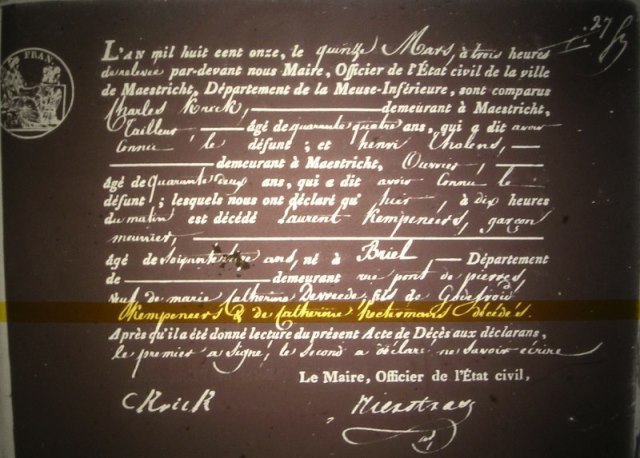 27
FRAN
L'AN mil huit cent onze, le quinze Mars, à trois heures
de relevée par-devant nous Maire, Officier de l'État civil de la ville
de Maestricht, Département de la Meuse-Inférieure, sont comparus
Charles Krick, demeurant à Maestricht,
Tailleur âgé de quarante quatre ans, qui a dit avoir
connu le défunt ; et henri
demeurant à Maestricht, Ouvrier,
âgé de Quarante deux ans, qui a dit avoir connu le
défunt ; lesquels nous ont déclaré qu' hier, à dix heures
du matin est décédé Laurent Kempeneers, garçon
meunier,
âgé de ans, né à Briel Département
de demeurant rue pont de pierres
veuf de marie Catherine fils de Godefroid
Kempeneers & de Catherine décédés.
Après qu'il a été donné lecture du présent Acte de Décès aux déclarans,
le premier a signé, le second a déclaré ne savoir écrire
Le Maire, Officier de l'État civil,
CKrick Nierstrasz